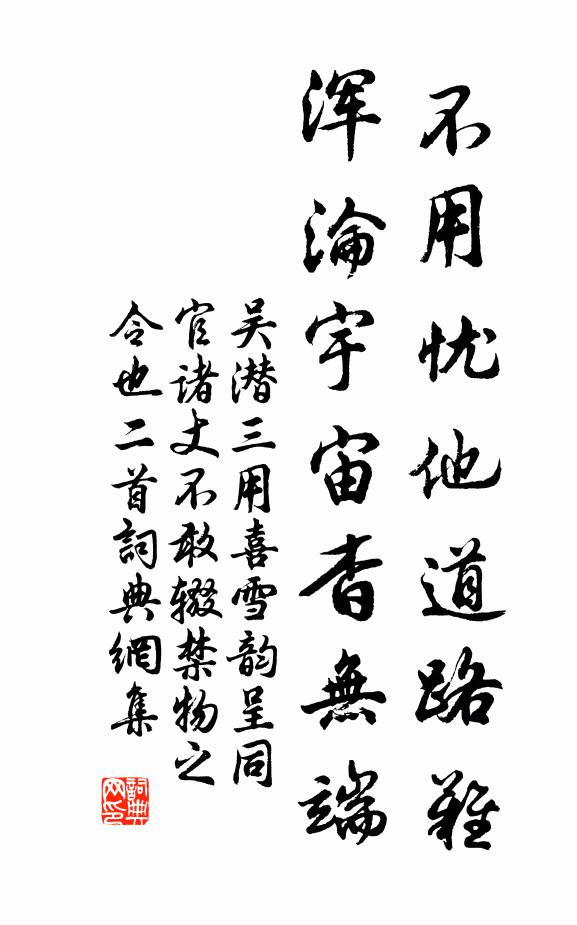 不用忧他道路難
浑淪宇宙杳無端
吴潜三用喜雪韵呈同
官诸丈不敢辍禁物之
令也二首詞典網集
詞典网印